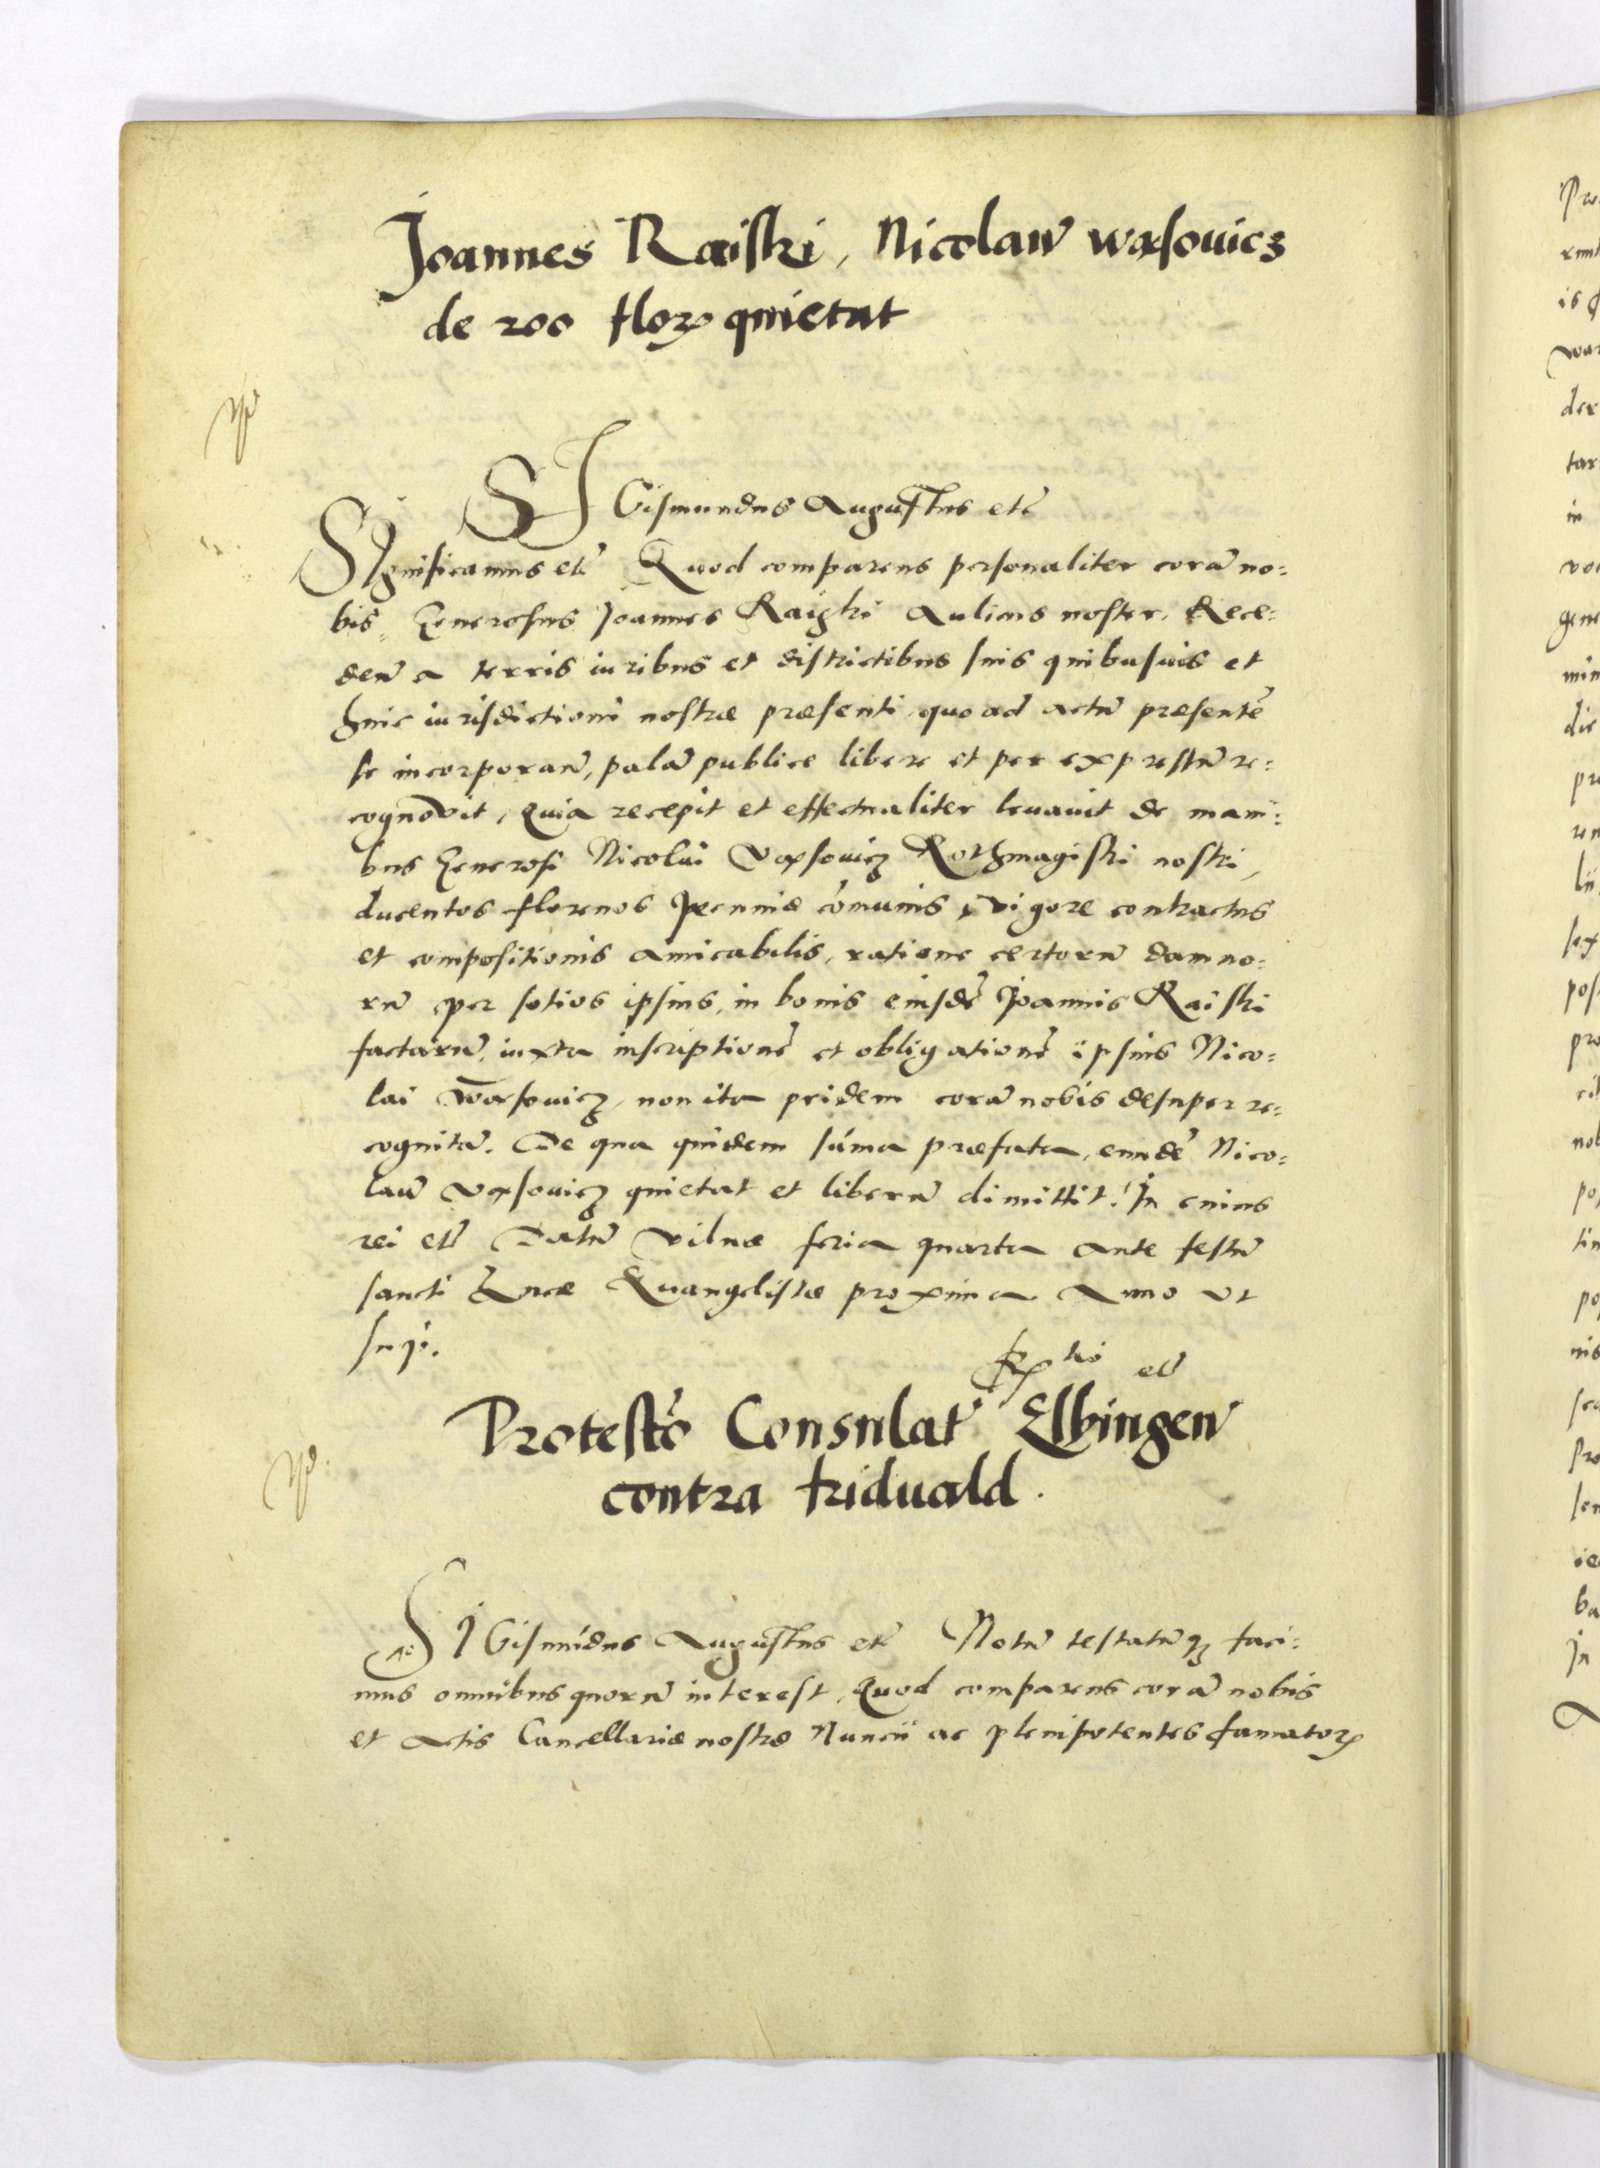 Joannes Raiski, Nicolaũ waxsouicz
de 200 floꝝ quietat
SJGismundus Augustus etc̃
SIgnificamus etc̃ Quod comparens personaliter corã no=
bis. Generosus Joannes Raiski Aulicus noster. Rece=
deñ a terris iuribus et districtibus suis quibusuis et
huic iurisdictioni nostræ præsenti quo ad actũ præsentẽ
se incorporañ, palã publice libere et per expressũ re=
cognovit, Quia recepit et effectualiter levauit de mani=
bus Generosi Nicolai Vaxsouicz Rothmagistri nostri,
ducentos florenos Pecuniæ cõmunis, vigore contractus
et compositionis amicabilis, ratione certorũ damno=
rũ per sotios ipsius, in bonis eiusdẽ Joannis Raiski
factarũ, iuxta inscriptionẽ et obligationẽ ipsius Nico=
lai Waxsouicz, non ita pridem corã nobis desuper re=
cognitã. De qua quidem sũma præfata, eundẽ Nico=
laũ Vaxsouicz quietat et liberũ dimittit. In cuius
rei etc̃ Datũ Vilnæ feria quarta ante festũ
sancti Lucæ Euangelistæ proxima Anno Vt
sup.
Rtio etc̃
Protestõ Consulat' Elbingeñ
contra friduald.
SIGismũdus Augustus etc̃ Notũ testatũqꝫ faci=
mus omnibus quorũ interest, Quod comparens corã nobis
et Actis Cancellariæ nostræ Nuncii ac plenipotentes famatoꝝ